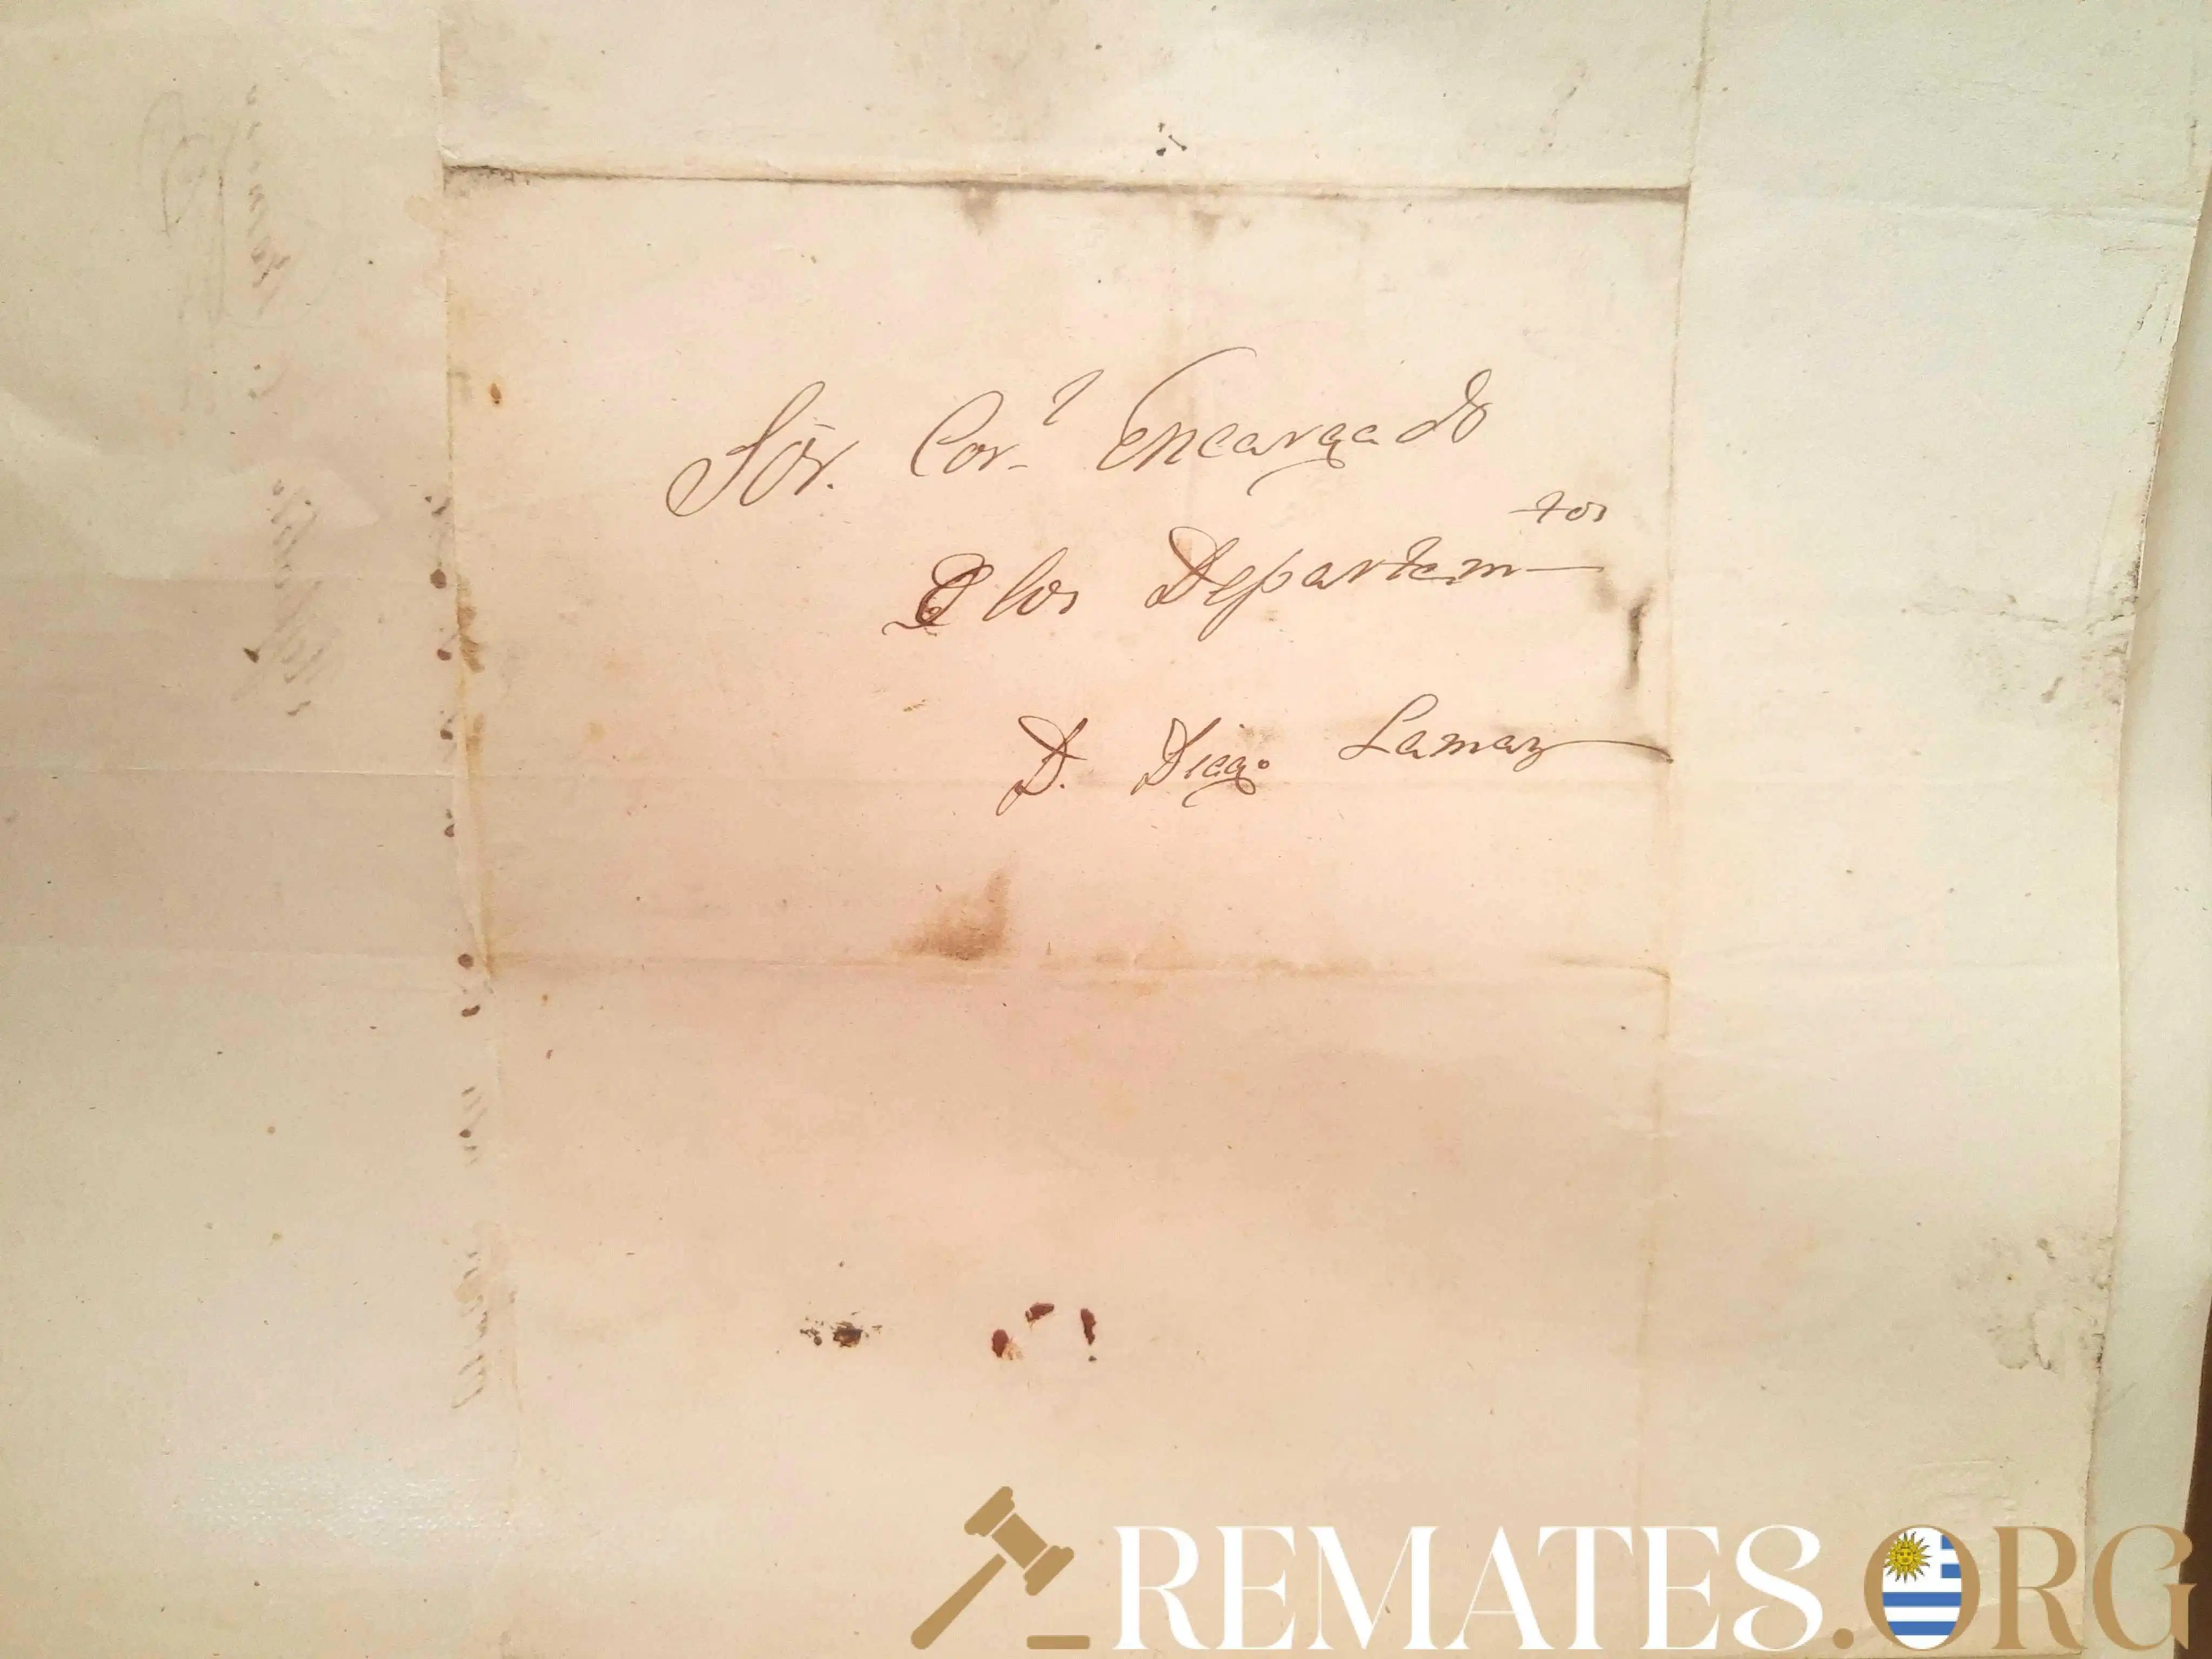 Sör. Cor.l Encargado
D los Departam tos
D. Diego Lamas
REMATES.ORG